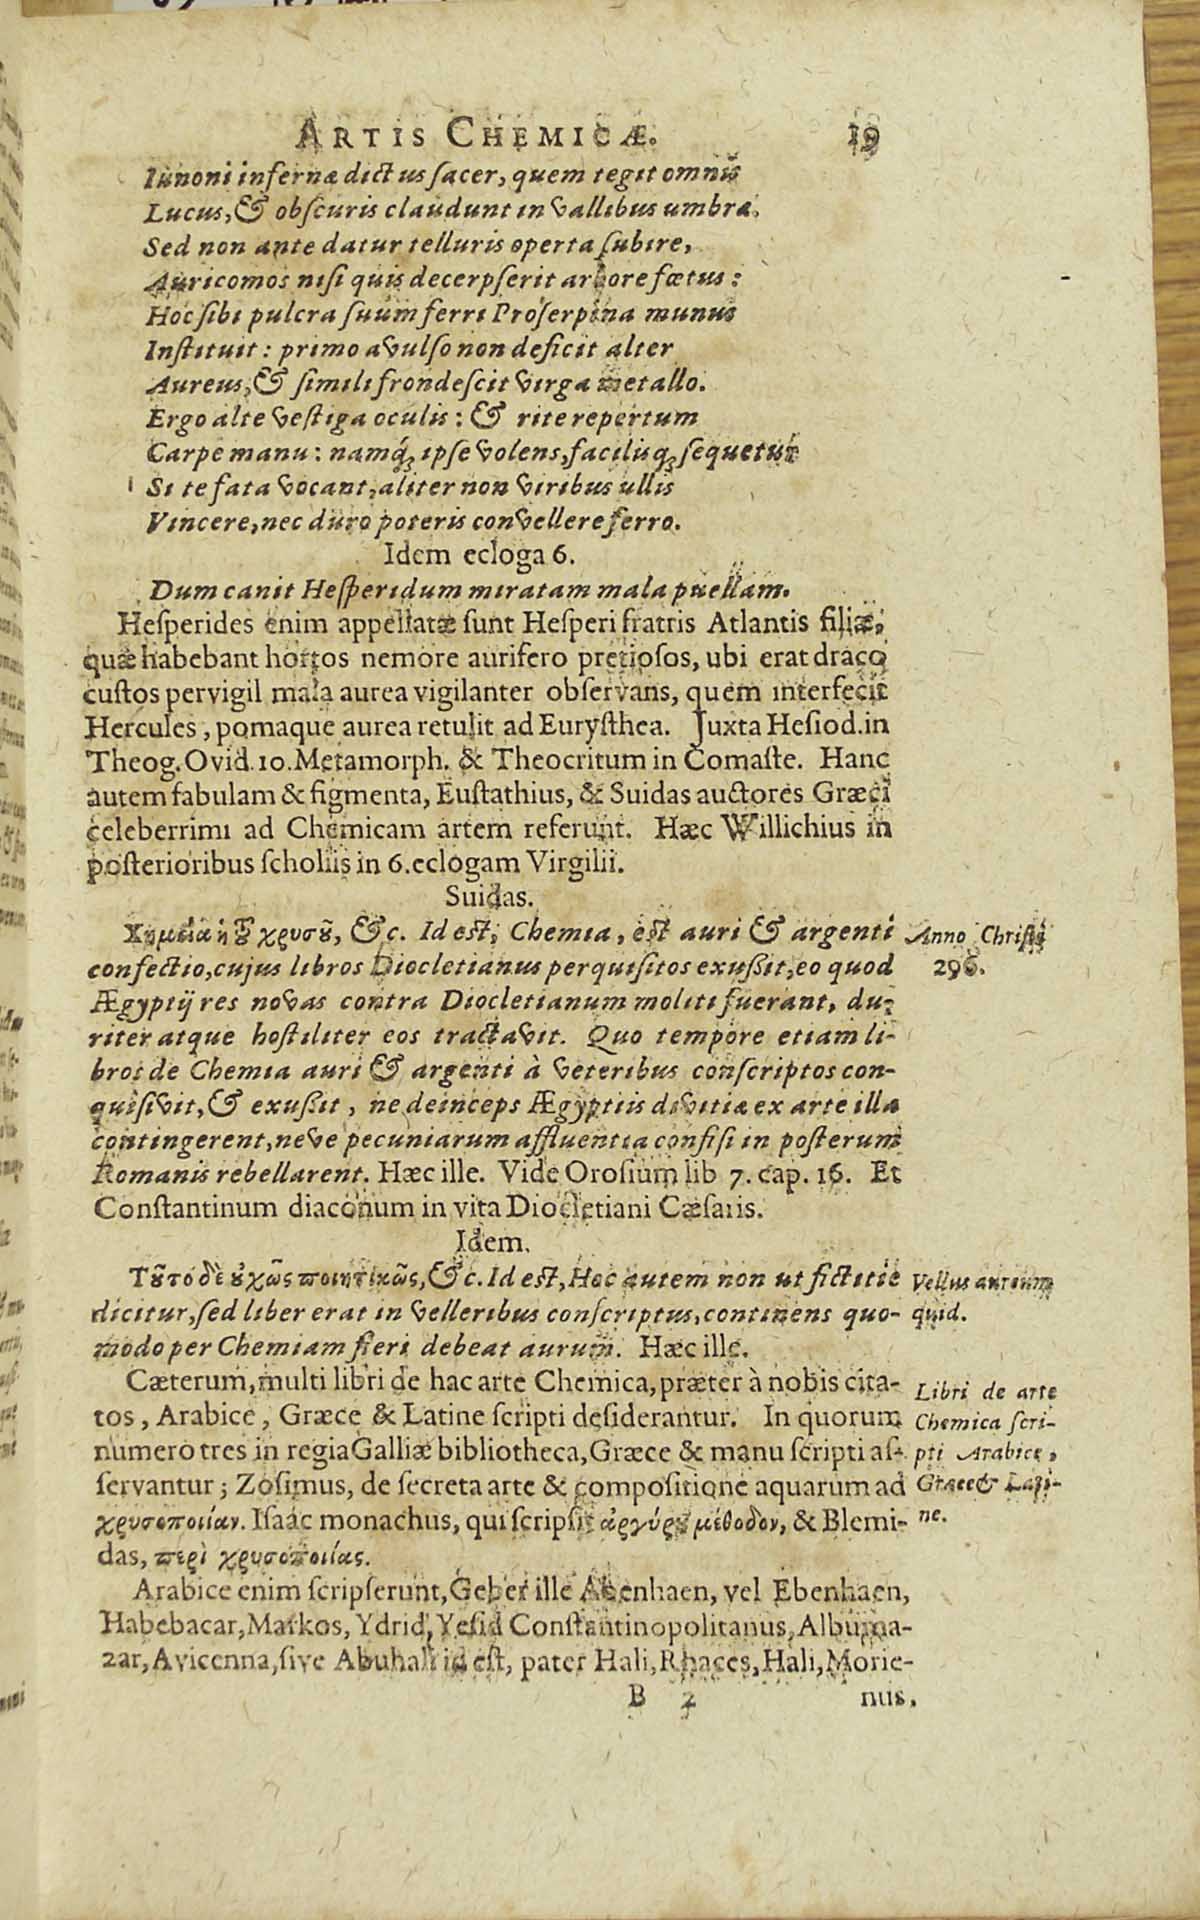 ARTIS CHEMICÆ. 19
Iunoni infernæ dictus sacer, quem tegit omnis
Lucus, & obscuris claudunt in vallibus umbræ.
Sed non ante datur telluris operta subire,
Auricomos nisi quis decerpserit arbore fœtus:
Hoc sibi pulcra suum ferri Proserpina munus
Instituit: primo avulso non deficit alter
Aureus, & simili frondescit virga metallo.
Ergo alte vestiga oculis: & rite repertum
Carpe manu: namq́; ipse volens, facilisq; sequetur
Si te fata vocant, aliter non viribus ullis
Vincere, nec duro poteris convellere ferro.
Idem ecloga 6.
Dum canit Hesperidum miratam mala puellam.
Hesperides enim appellatæ sunt Hesperi fratris Atlantis filiæ,
quæ habebant hortos nemore aurifero pretiosos, ubi erat draco
custos pervigil mala aurea vigilanter observans, quem interfecit
Hercules, pomaque aurea retulit ad Eurysthea. Juxta Hesiod. in
Theog. Ovid. 10. Metamorph. & Theocritum in Comaste. Hanc
autem fabulam & figmenta, Eustathius, & Suidas auctores Græci
celeberrimi ad Chemicam artem referunt. Hæc Willichius in
posterioribus scholiis in 6. eclogam Virgilii.
Suidas.
Χημεία ἡ τοῦ χρυσοῦ, &c. Id est, Chemia, est auri & argenti
confectio, cujus libros Diocletianus perquisitos exussit, eo quod
Ægyptij res novas contra Diocletianum moliti fuerant, du-
riter atque hostiliter eos tractavit. Quo tempore etiam li-
bros de Chemia auri & argenti à veteribus conscriptos con-
quisivit, & exussit, ne deinceps Ægyptiis divitiæ ex arte illa
contingerent, neve pecuniarum affluentia confisi in posterum
Romanis rebellarent. Hæc ille. Vide Orosium lib 7. cap. 16. Et
Constantinum diaconum in vita Diocletiani Cæsaris.
Anno Christi
296.
Idem.
Τοῦτο δὲ οὐχ ὡς ποιητικῶς, &c. Id est, Hoc autem non ut fictitie
dicitur, sed liber erat in velleribus conscriptus, continens quo-
modo per Chemiam fieri debeat aurum. Hæc ille.
Vellus aureum
quid.
Cæterum, multi libri de hac arte Chemica, præter à nobis cita-
tos, Arabice, Græce & Latine scripti desiderantur. In quorum
numero tres in regia Galliæ bibliotheca, Græce & manu scripti as-
servantur; Zosimus, de secreta arte & compositione aquarum ad
χρυσοποιίαν. Isaac monachus, qui scripsit ἀργύρου μέθοδον, & Blemi-
das, περὶ χρυσοποιίας.
Libri de arte
Chemica scri-
pti Arabice,
Græce & Lati-
ne.
Arabice enim scripserunt, Geber ille Abenhaen, vel Ebenhaen,
Habebacar, Markos, Ydrid, Yesid Constantinopolitanus, Albuma-
zar, Avicenna, sive Abuhali id est, pater Hali, Rhaces, Hali, Morie-
B 2 nus.